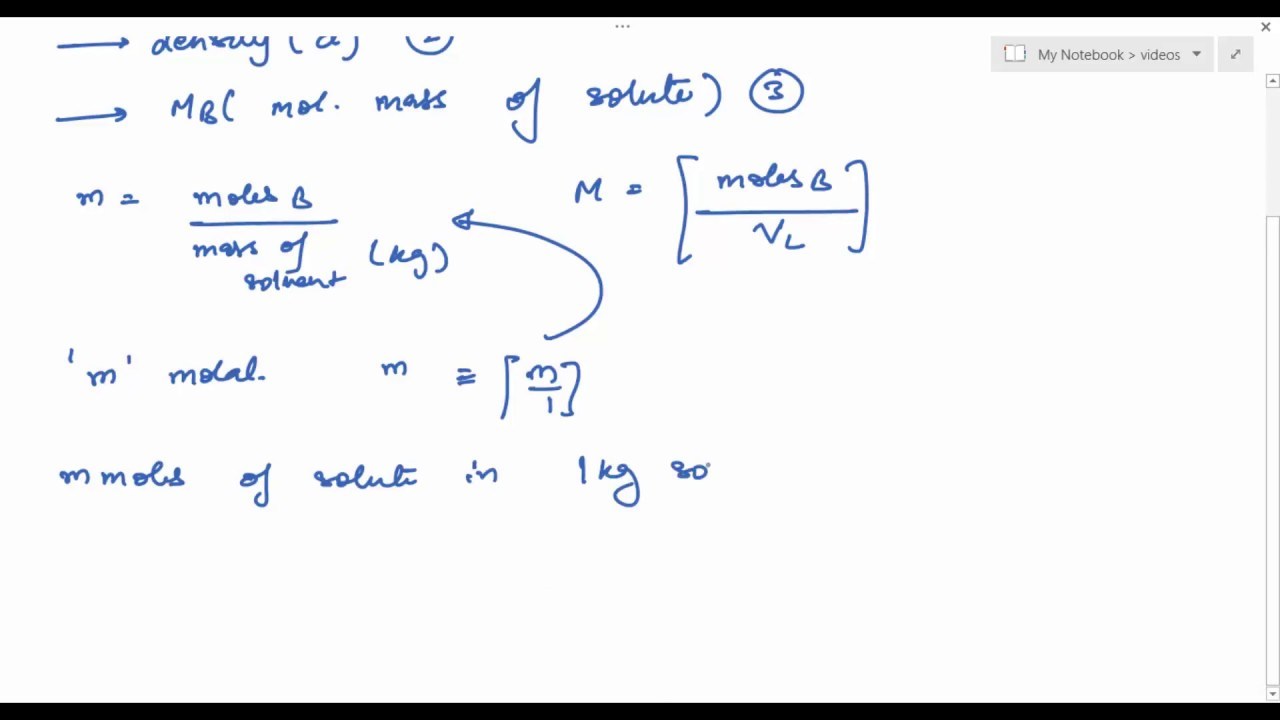 ...
My Notebook > videos
→ density (d) 2
→ MB( mol. mass of solute) 3
m = moles B / mass of solvent (kg)
M = [ moles B / VL ]
'm' molal. m ≡ [ m / 1 ]
m moles of solute in 1 kg so